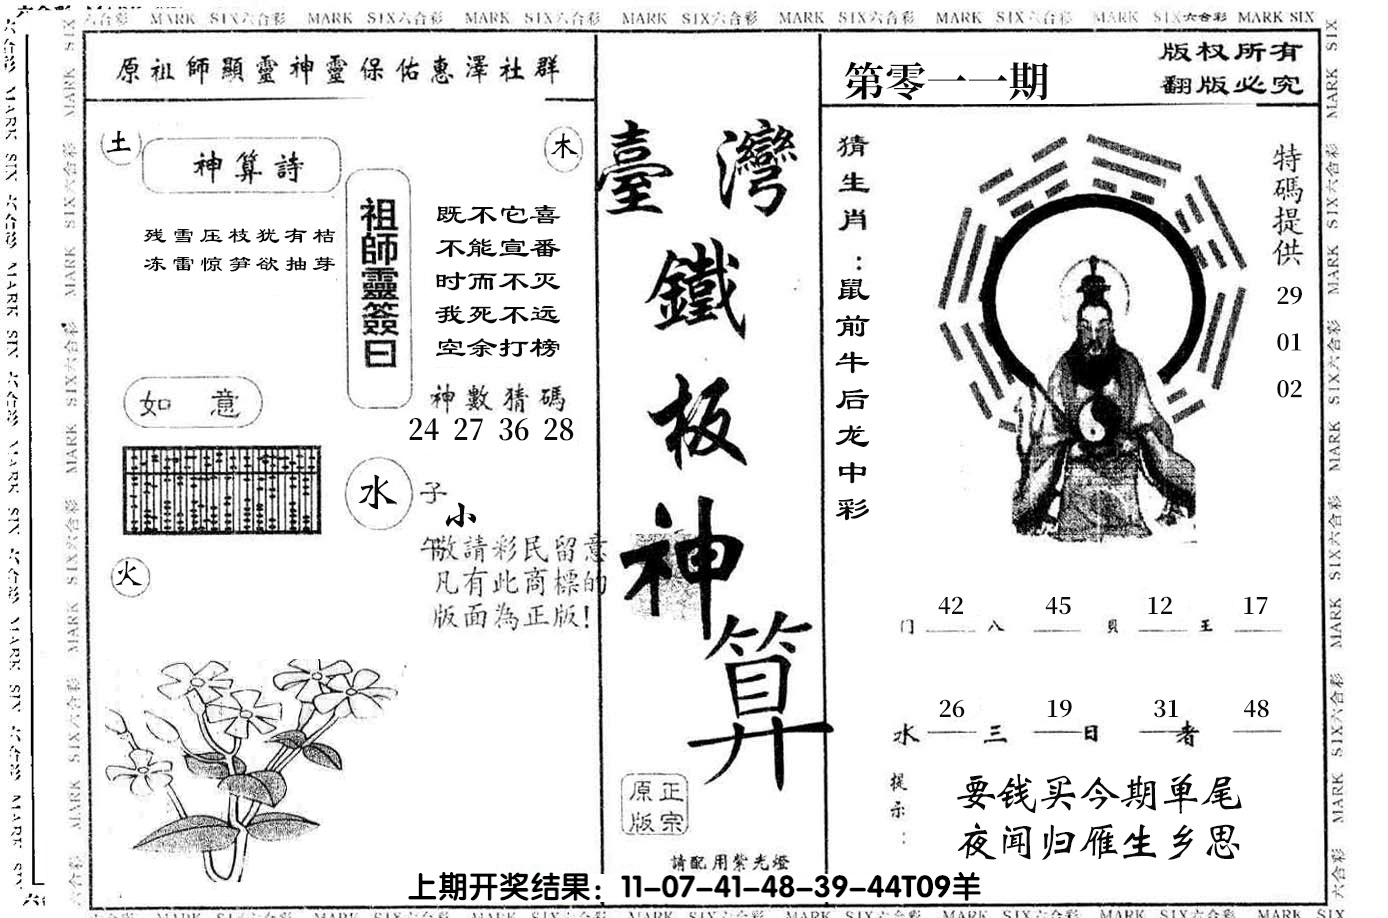 六合彩 MARK SIX六合彩 MARK SIX六合彩 MARK SIX六合彩 MARK SIX六合彩 MARK SIX六合彩 MARK SIX六合彩 MARK SIX六合彩 MARK SIX
原祖師顯靈神靈保佑惠澤社群
土
木
神算詩
残雪压枝犹有桔
冻雷惊笋欲抽芽
祖師靈簽曰
既不它喜
不能宣番
时而不灭
我死不远
空余打榜
神數猜碼
24 27 36 28
如意
水
子
小
午
火
敬請彩民留意
凡有此商標的
版面為正版!
臺灣
鐵
板
神
算
原正
版宗
請配用紫光燈
第零一一期
版权所有
翻版必究
猜生肖:鼠前牛后龙中彩
特碼提供
29
01
02
42 45 12 17
门 八 貝 王
26 19 31 48
水 三 日 者
提示:
要钱买今期单尾
夜闻归雁生乡思
上期开奖结果：11-07-41-48-39-44T09羊